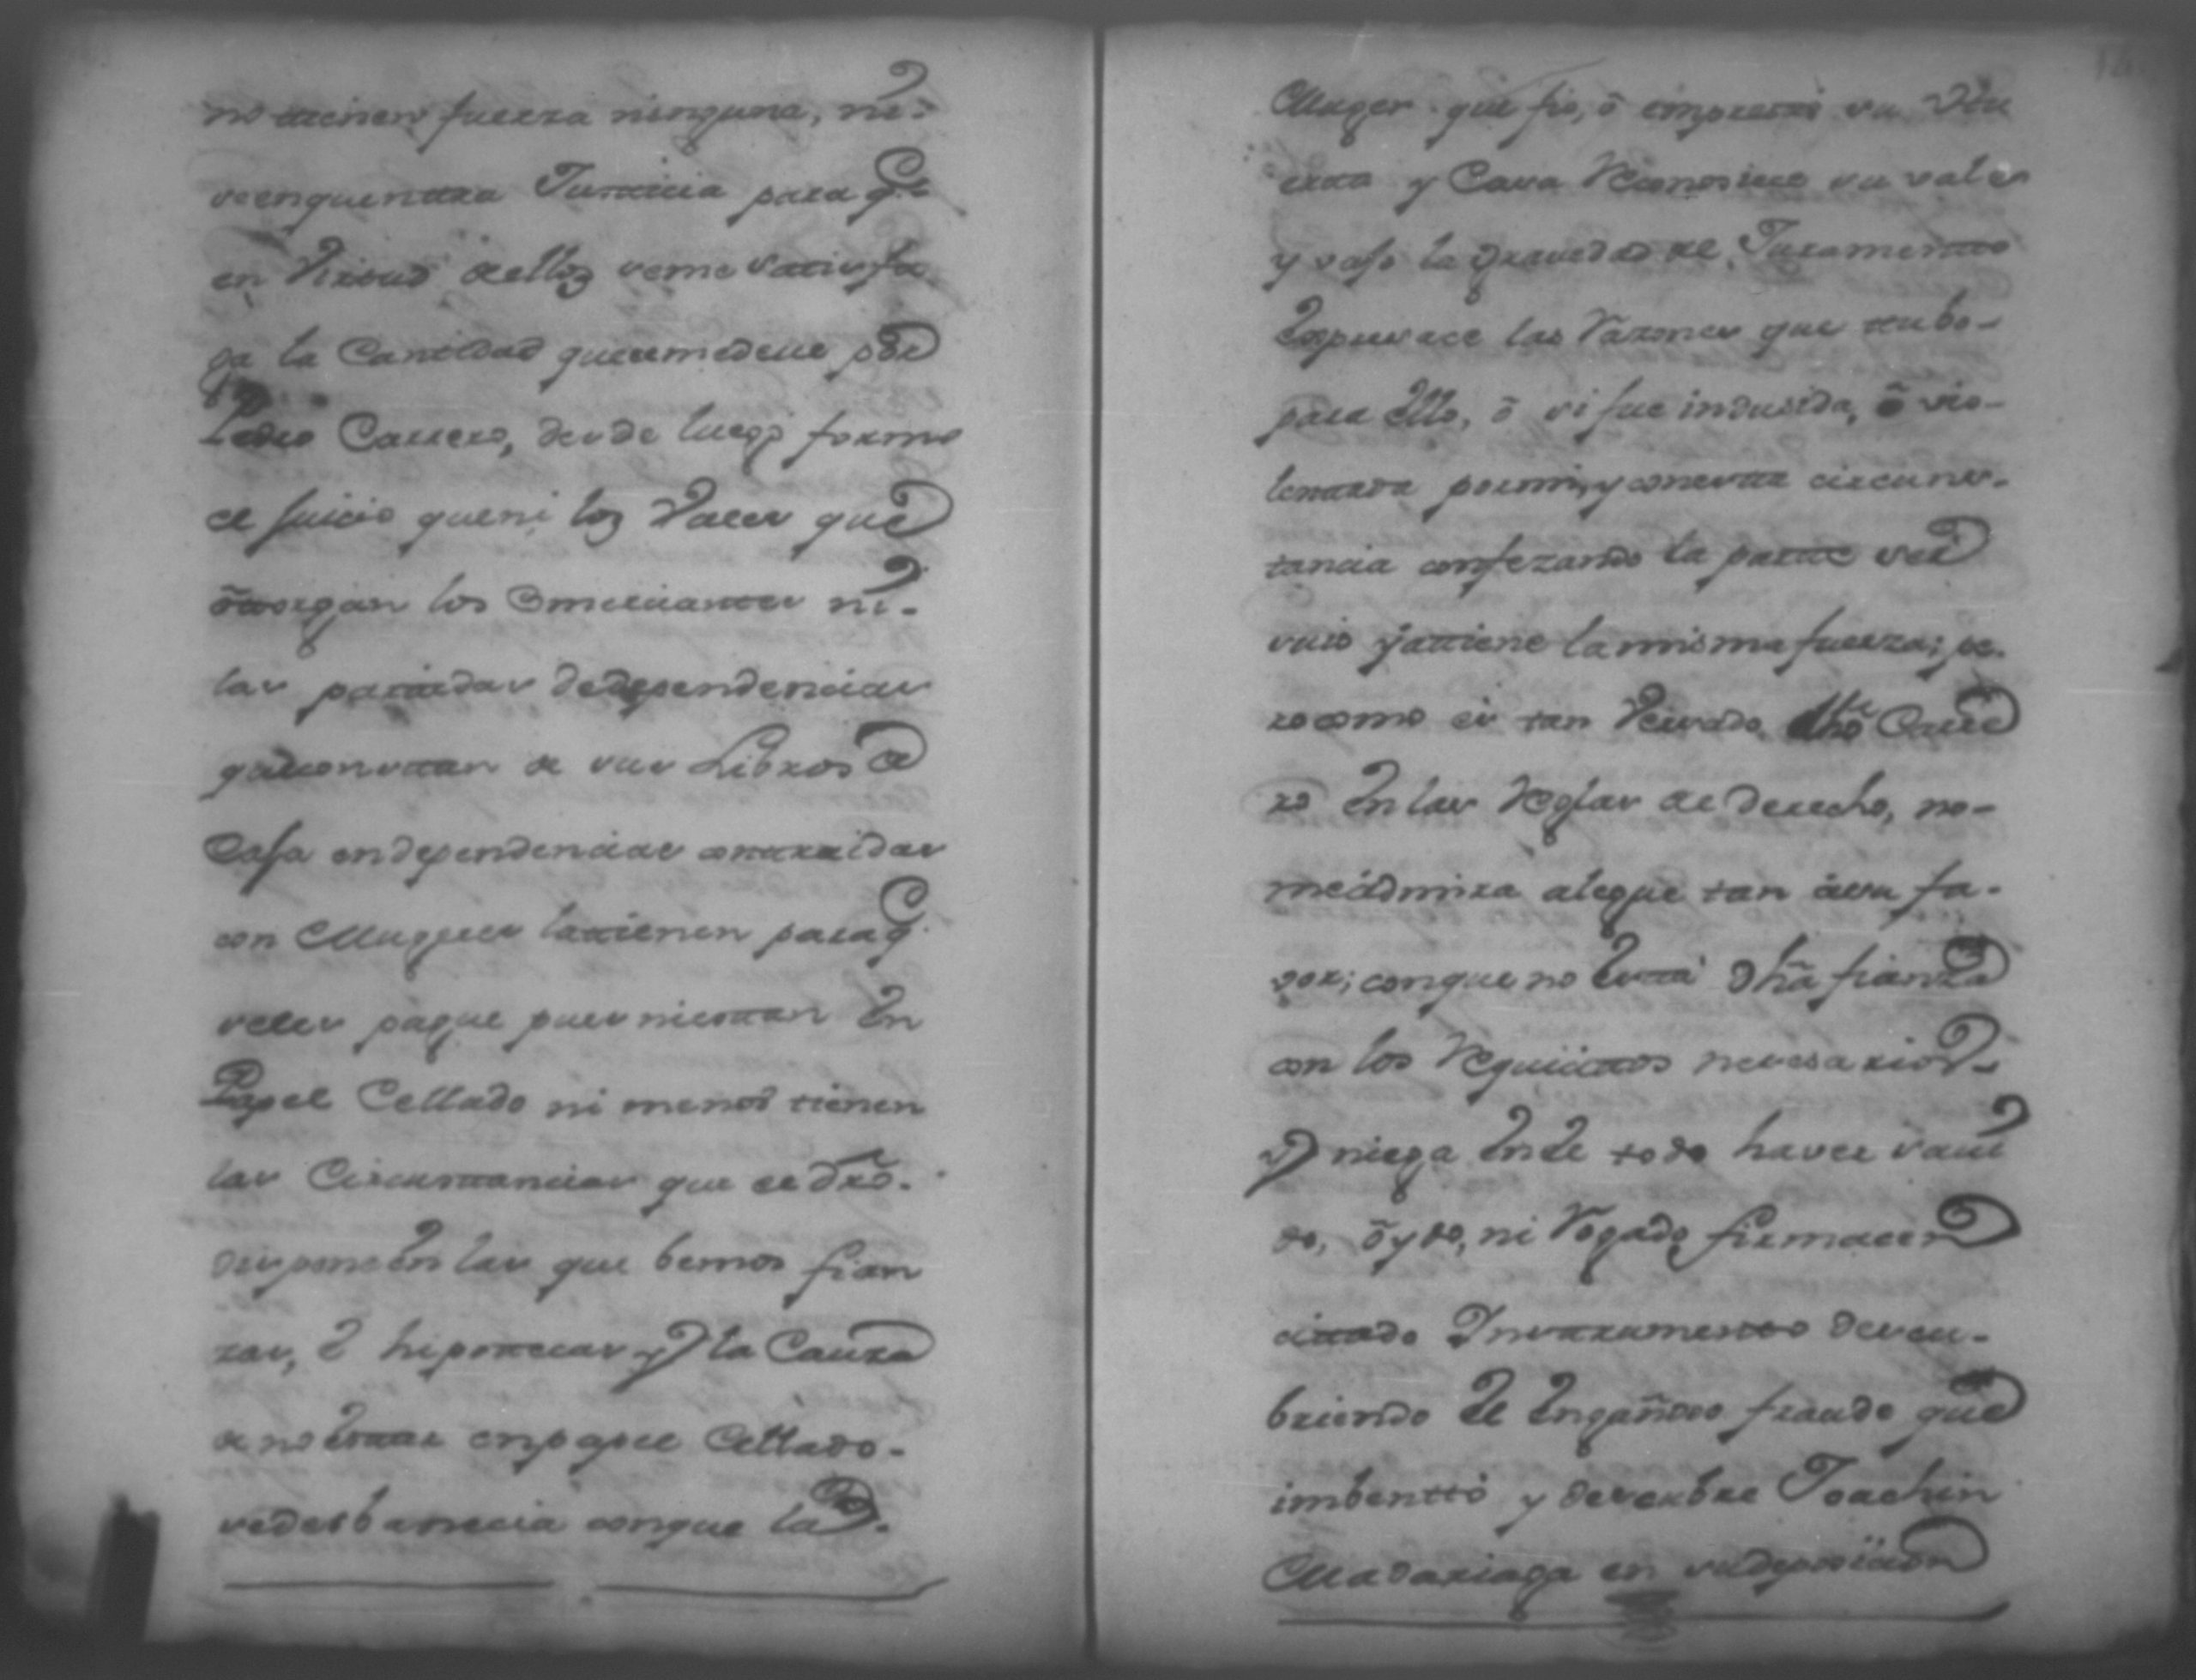 no tienen fuerza ninguna, ni-
se enquentra Justicia para q.e
en Virtud de ellos se me satisfa
ga la Cantidad que se me deve por
Pedro Carrero, desde luego formo
el juicio que ni los Vales que
otorgan los Comerciantes ni-
las partidas de dependencias
que constan de sus Libros de
Casa en dependencias contraidas
con Mugeres la tienen para q.
se les pague pues ni estan En
Papel Cellado ni menos tienen
las Circunstancias que el dro.
dispone En las que bemos fian
zar, e hipotecar y la Causa
de no Estar en papel Cellado-
se desbanecia con que la
Muger que fio, ò
y Cara Reconosiece su vale
y vajo la gravedad del Juramento
Expresace las Razones que tubo-
para Ello, ò si fue indusida, ò vio-
lentada por mi, y con esta circuns-
tancia confezando la parte ser
suio ya tiene la misma fuerza; pe-
ro como es tan Versado dho Carre
ro En las Reglas de derecho, no-
me admira alegue tan a su fa-
vor; con que no Está dha fianza
con los Requicitos necesarios-
y niega Ente todo haver savi
do, òydo, ni Rogado firmacen
citado Instrumento descu-
briendo El Engañoso fraude que
imbentó y descubre Joachin
Madariaga en su deposicion